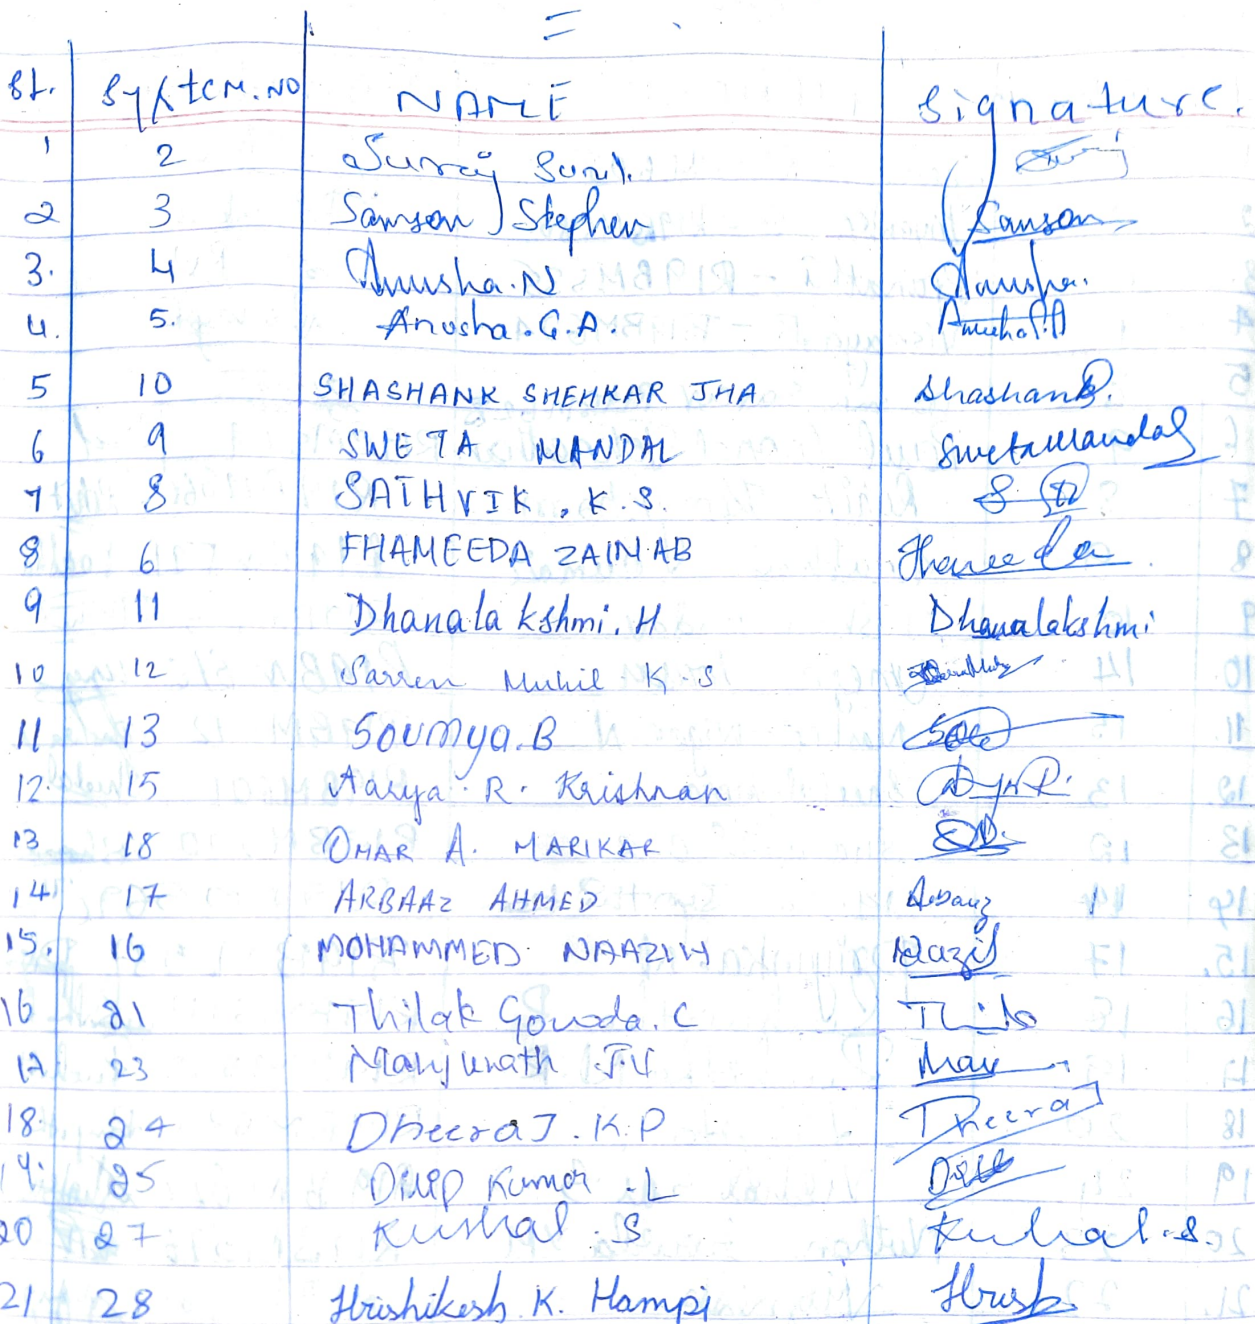 Sl. System.NO NAME Signature.
1 2 Suraj Sunil.
2 3 Samson Stephen Samson
3. 4 Anusha.N Anusha.
4. 5. Anusha.G.A. Anusha.G.A
5 10 SHASHANK SHEHKAR JHA Shashank.
6 9 SWETA MANDAL Sweta Mandal
7 8 SATHVIK. K.S.
8 6 FHAMEEDA ZAINAB Fhameeda
9 11 Dhanalakshmi.H Dhanalakshmi
10 12 Sarren Mukil K.S
11 13 Soumya.B
12. 15 Aarya. R. Krishnan
13 18 OMAR A. MARIKAR
14 17 ARBAAZ AHMED Arbaaz
15. 16 MOHAMMED NAAZIH
16 21 Thilak Gowda.C
17 23 Manjunath .J.V
18. 24 DheeraJ.K.P Dheeraj
19. 25 Dilip Kumar .L
20 27 Kushal .S Kushal.S.
21 28 Hrishikesh K. Hampi